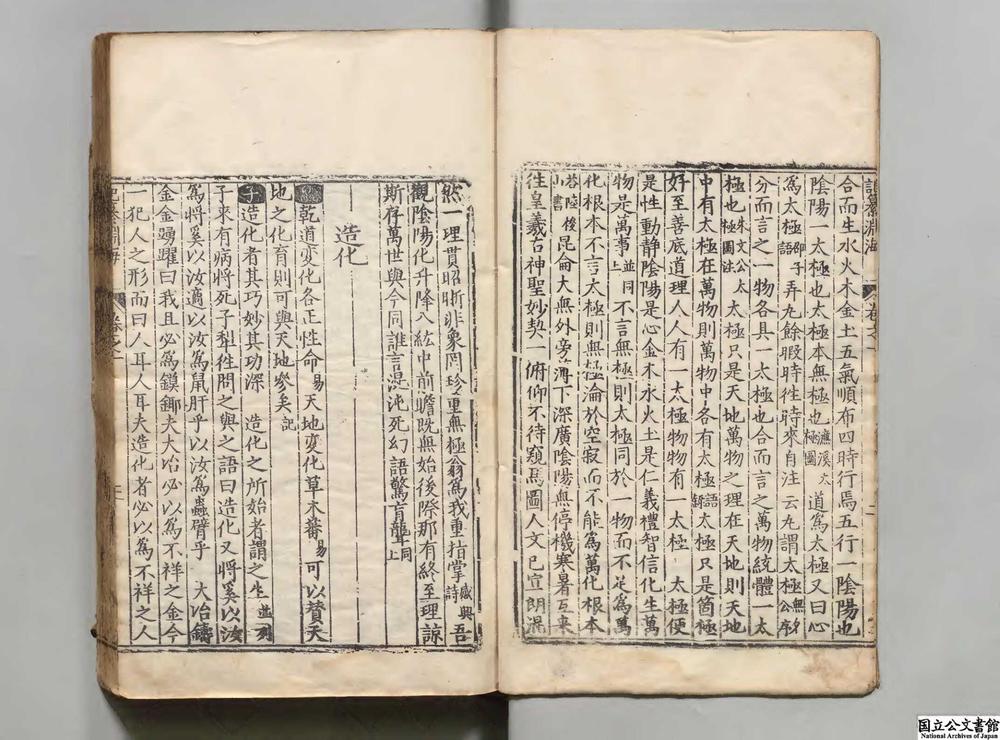 合而生水火木金土五氣順布四時行焉五行一陰陽也
陰陽一太極也太極本無極也濂溪太極圖 道為太極又曰心
為太極邵子語 弄丸餘暇時徃時來自注云丸謂太極無名公序
分而言之一物各具一太極也合而言之萬物統體一太
極也朱文公太極圖註 太極只是天地萬物之理在天地則天地
中有太極在萬物則萬物中各有太極語錄 太極只是箇極
好至善底道理人人有一太極物物有一太極 太極便
是性動静陰陽是心金木水火土是仁義禮智信化生萬
物是萬事並同上 不言無極則太極同於一物而不足為萬
化根本不言太極則無極淪於空寂而不能為萬化根本
答陸小書 後昆侖大無外旁薄下深廣陰陽無停機寒暑互来
徃皇羲古神聖妙契一俯仰不待窺馬圖人文已宣朗渾
然一理貫昭晣非象罔珍重無極翁為我重指掌感興詩 吾
觀陰陽化升降八紘中前瞻既無始後際那有終至理諒
斯存萬世與今同誰言混沌死幻語驚盲聾同上
造化
乾道変化各正性命易 天地変化草木蕃易 可以賛天
地之化育則可與天地参矣記
子 造化者其巧妙其功深 造化之所始者謂之生並列
子來有病將死子犁徃問之與之語曰造化又將奚以汝
為將奚以汝適以汝為鼠肝乎以汝為蟲臂乎 大冶鑄
金金踴躍曰我且必為鏌鋣夫大冶必以為不祥之金今
一犯人之形而曰人耳人耳夫造化者必以為不祥之人
卷之一
国立公文書館
National Archives of Japan